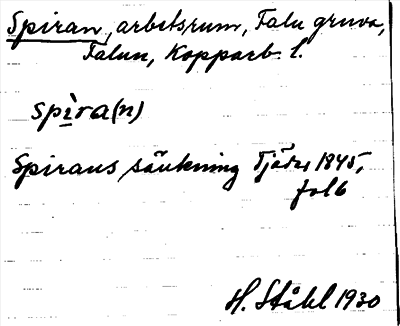 Spiran, arbetsrum, Falu gruva,
Falun, Kopparb. l.
spìra(n)
Spirans sänkning Tjäder 1845,
fol 6
H. Ståhl 1930